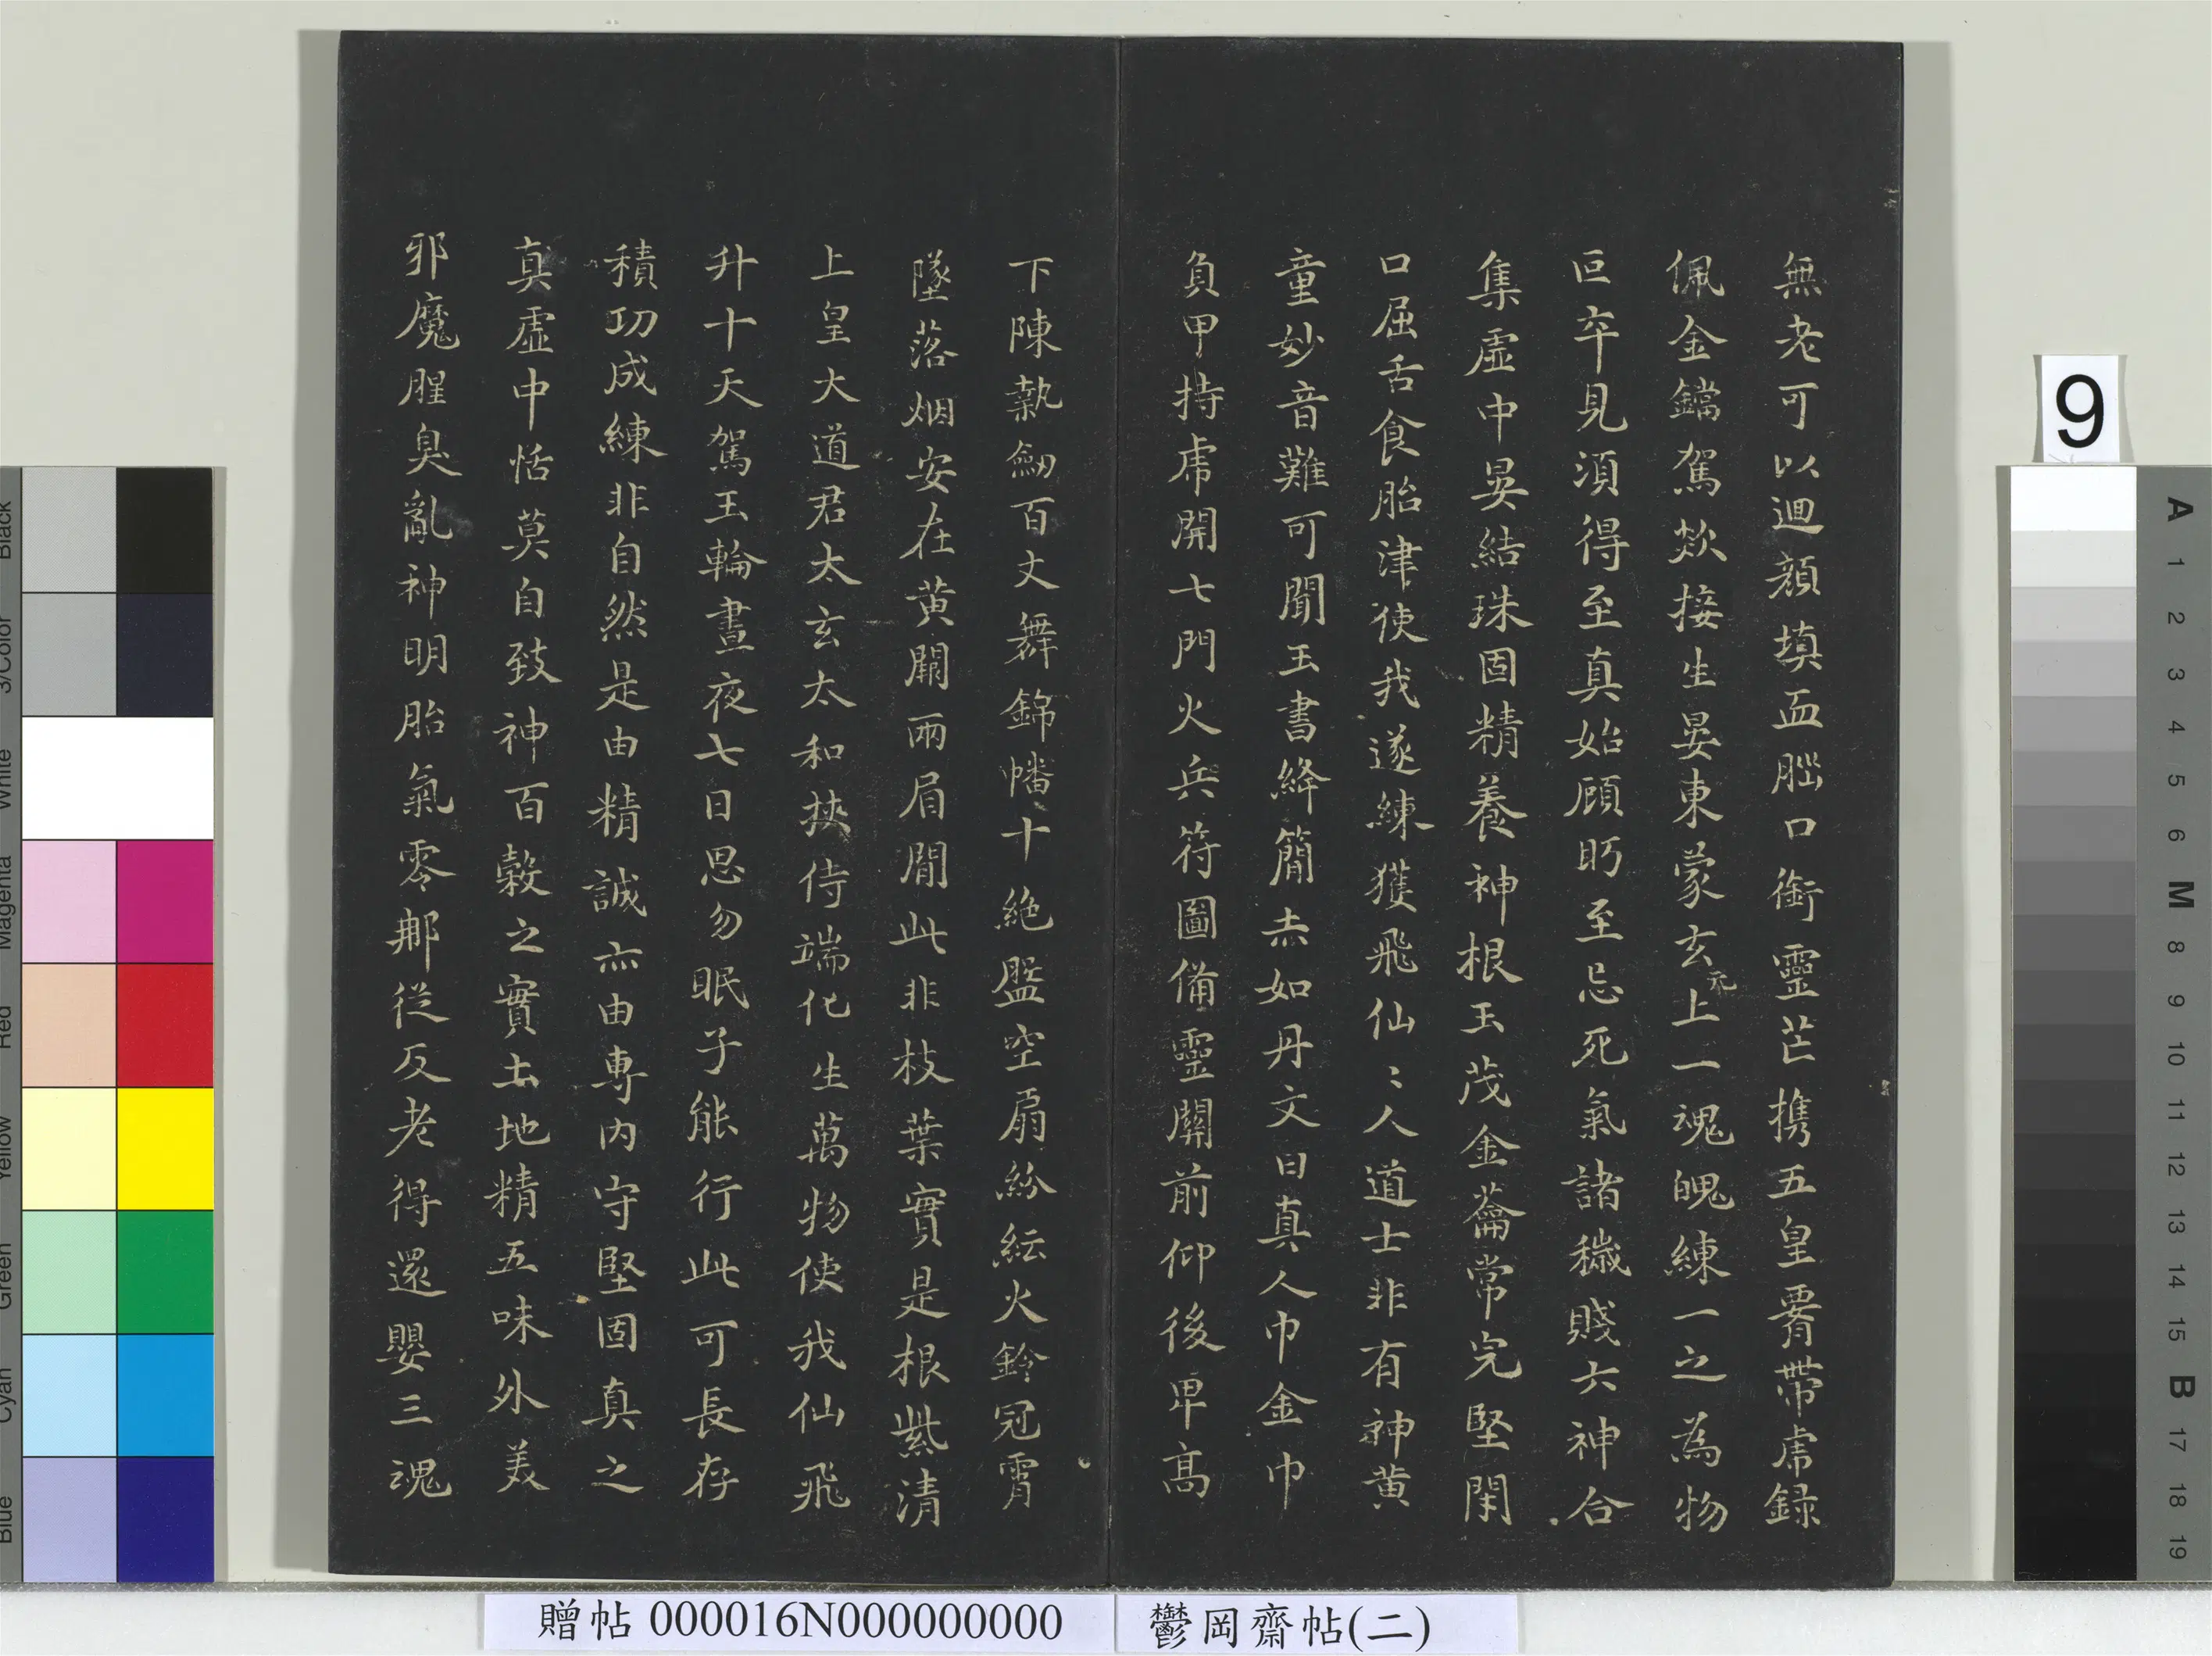 無老可以迴顏填血腦口銜靈芒攜五皇署帶虎錄
佩金鐺駕欻接生晏東蒙玄元上一魂魄練一之為物
叵卒見須得至真始顧眄至忌死氣諸穢賤六神合
集虛中晏結珠固精養神根玉茂金籥常完堅閉
口屈舌食胎津使我遂練獲飛仙〻人道士非有神黃
童妙音難可聞玉書絳簡赤如丹文曰真人巾金巾
負甲持虎開七門火兵符圖備靈關前仰後卑高
下陳執劒百丈舞錦幡十絕盤空扇紛紜火鈴冠霄
墜落烟安在黃闕兩眉間此非枝葉實是根紫清
上皇大道君太玄太和挾侍端化生萬物使我仙飛
升十天駕玉輪晝夜七日思勿眠子能行此可長存
積功成練非自然是由精誠亦由專內守堅固真之
真虛中恬莫自致神百穀之實土地精五味外美
邪魔腥臭亂神明胎氣零那從反老得還嬰三魂
9
贈帖 000016N000000000
鬱岡齋帖(二)
Black
3/Color
White
Magenta
Red
Yellow
Green
Cyan
Blue
A
1
2
3
4
5
6
M
8
9
10
11
12
13
14
15
B
17
18
19